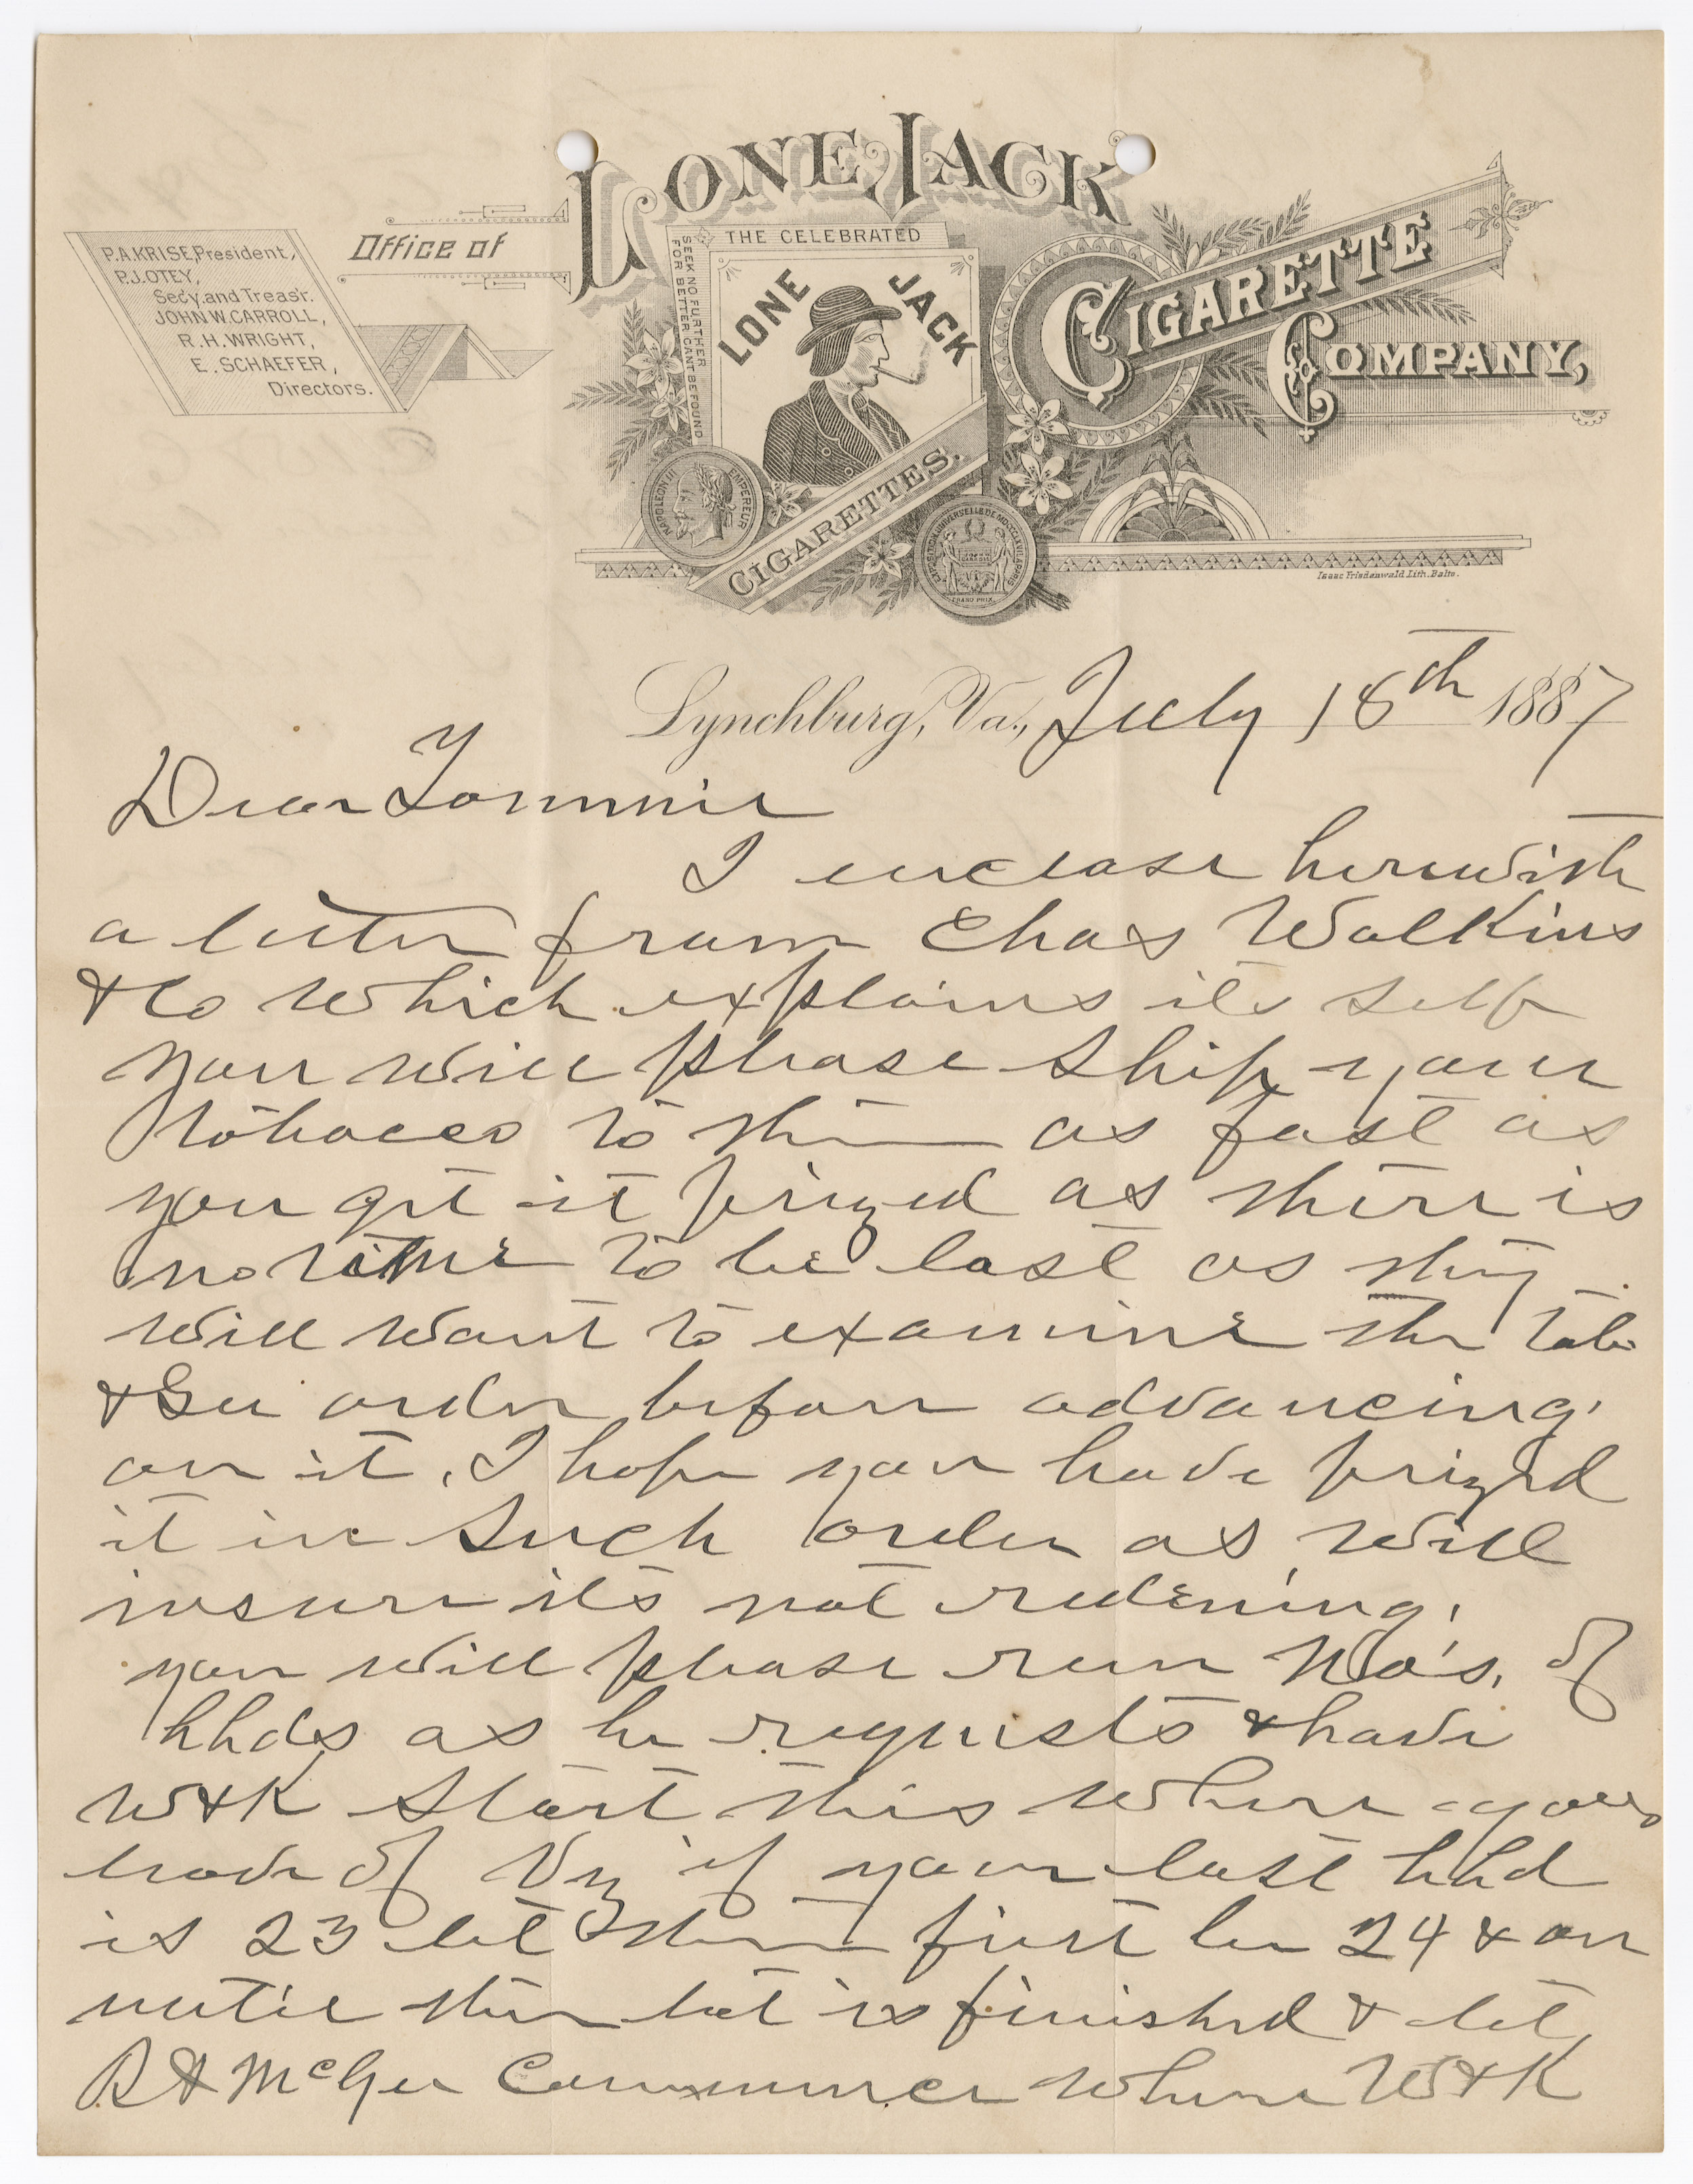 P.A.KRISE, President,
P.J.OTEY,
Secy. and Treasr.
JOHN W. CARROLL,
R.H.WRIGHT,
E. SCHAEFER,
Directors.
Office of
LONE JACK
CIGARETTE
COMPANY,
THE CELEBRATED
SEEK NO FURTHER
FOR BETTER CANT BE FOUND
LONE JACK
CIGARETTES.
NAPOLEON III EMPEREUR
GRAND PRIX
Isaac Friedenwald Lith. Balto.
Lynchburg, Va., July 18th 1887
Dear Tommie
I enclose herewith
a letter from Chas Walkins
& Co which explains its self
you will please ship your
tobacco to them as fast as
you get it prized as there is
no time to be lost as they
will want to examine the tob
& See order before advancing
on it. I hope you have prized
it in Such order as will
insure its not redening.
you will please run No's. of
hhds as he requists & have
W & K Start this where your
leave of Viz if your last hhd
is 23 let them first be 24 & on
until this lot is finished & let
R H McGee Commence where W & K